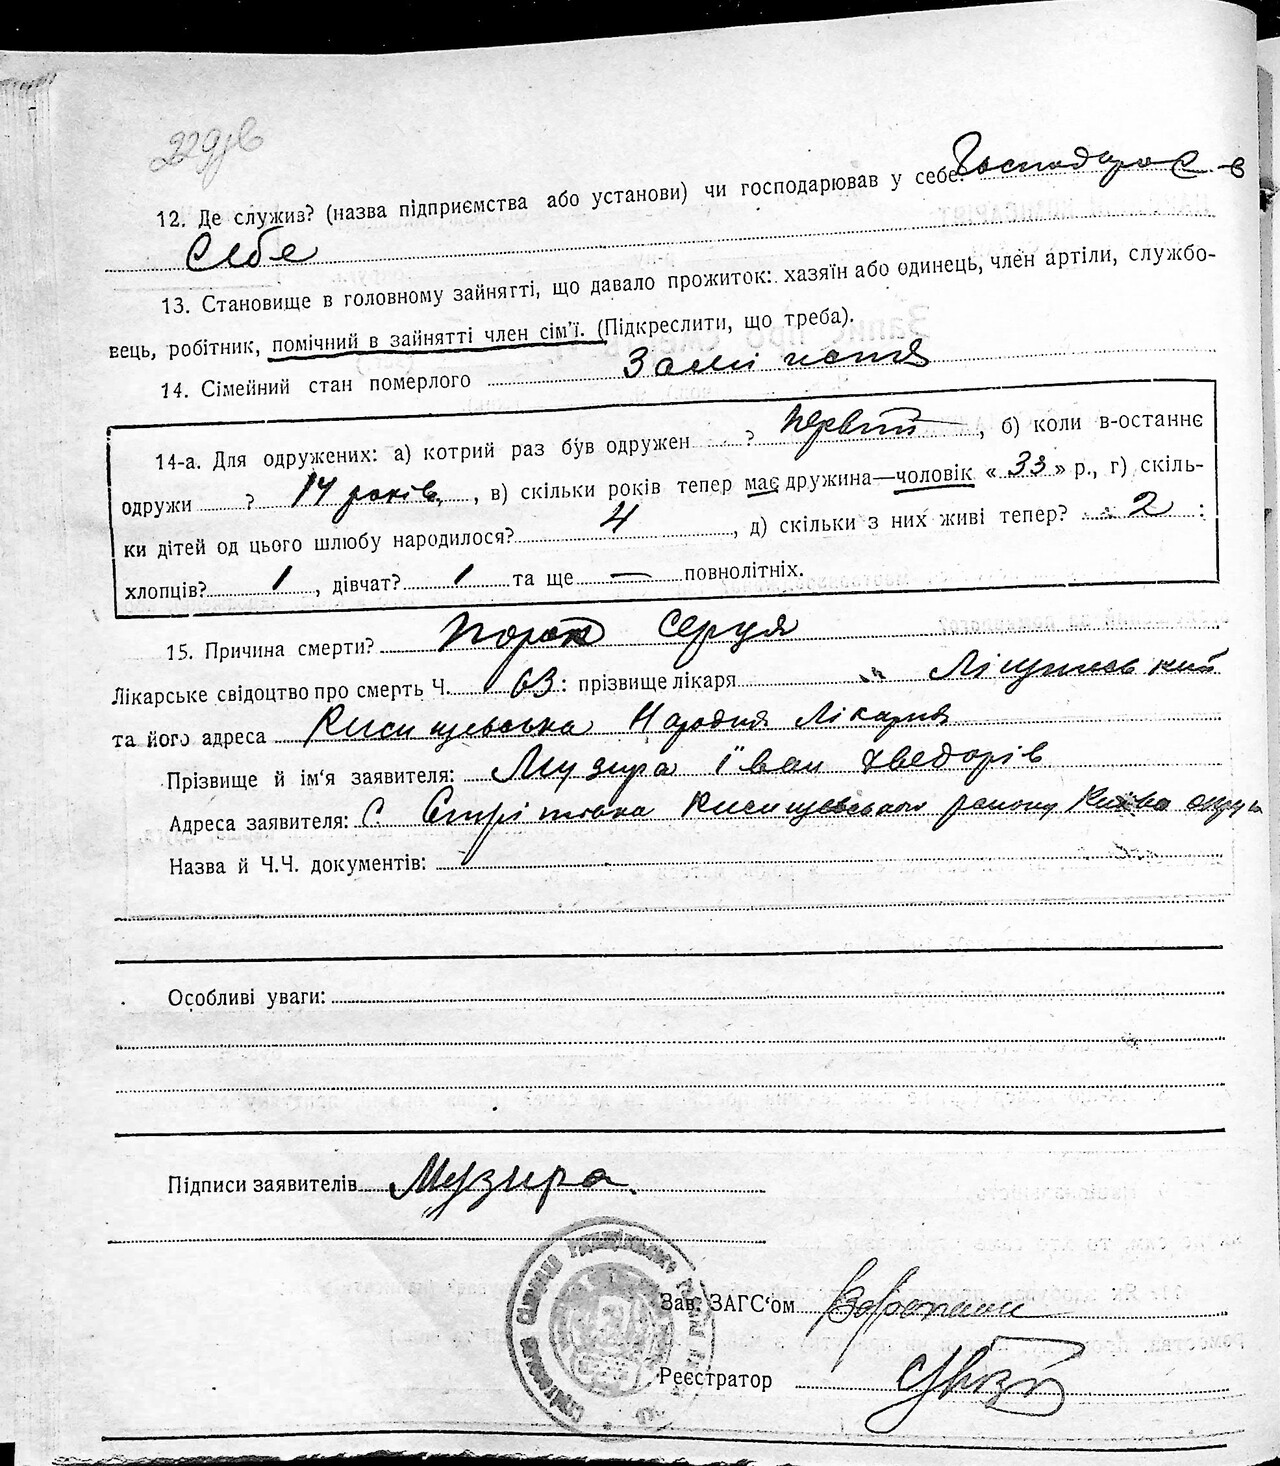 229зв
12. Де служив? (назва підприємства або установи) чи господарював у себе? Господарює в
Себе
13. Становище в головному зайнятті, що давало прожиток: хазяїн або одинець, член артіли, службо-
вець, робітник, помічний в зайнятті член сім'ї. (Підкреслити, що треба).
14. Сімейний стан померлого Заміжня
14-а. Для одружених: а) котрий раз був одружен ? первий, б) коли в-останнє
одружи ? 14 років, в) скільки років тепер має дружина—чоловік «33» р., г) скіль-
ки дітей од цього шлюбу народилося? 4, д) скільки з них живі тепер? 2 :
хлопців? 1, дівчат? 1 та ще — повнолітніх.
15. Причина смерти? порок серця
Лікарське свідоцтво про смерть Ч. 63: прізвище лікаря
та його адреса Кисищевська Народня Лікарня
Прізвище й ім'я заявителя: Музира Іван Хведорів
Адреса заявителя: С Стрітовка Кисищевського району Київсь округи
Назва й Ч.Ч. документів:
Особливі уваги:
Підписи заявителів Музира.
Зав. ЗАГС'ом
Реєстратор